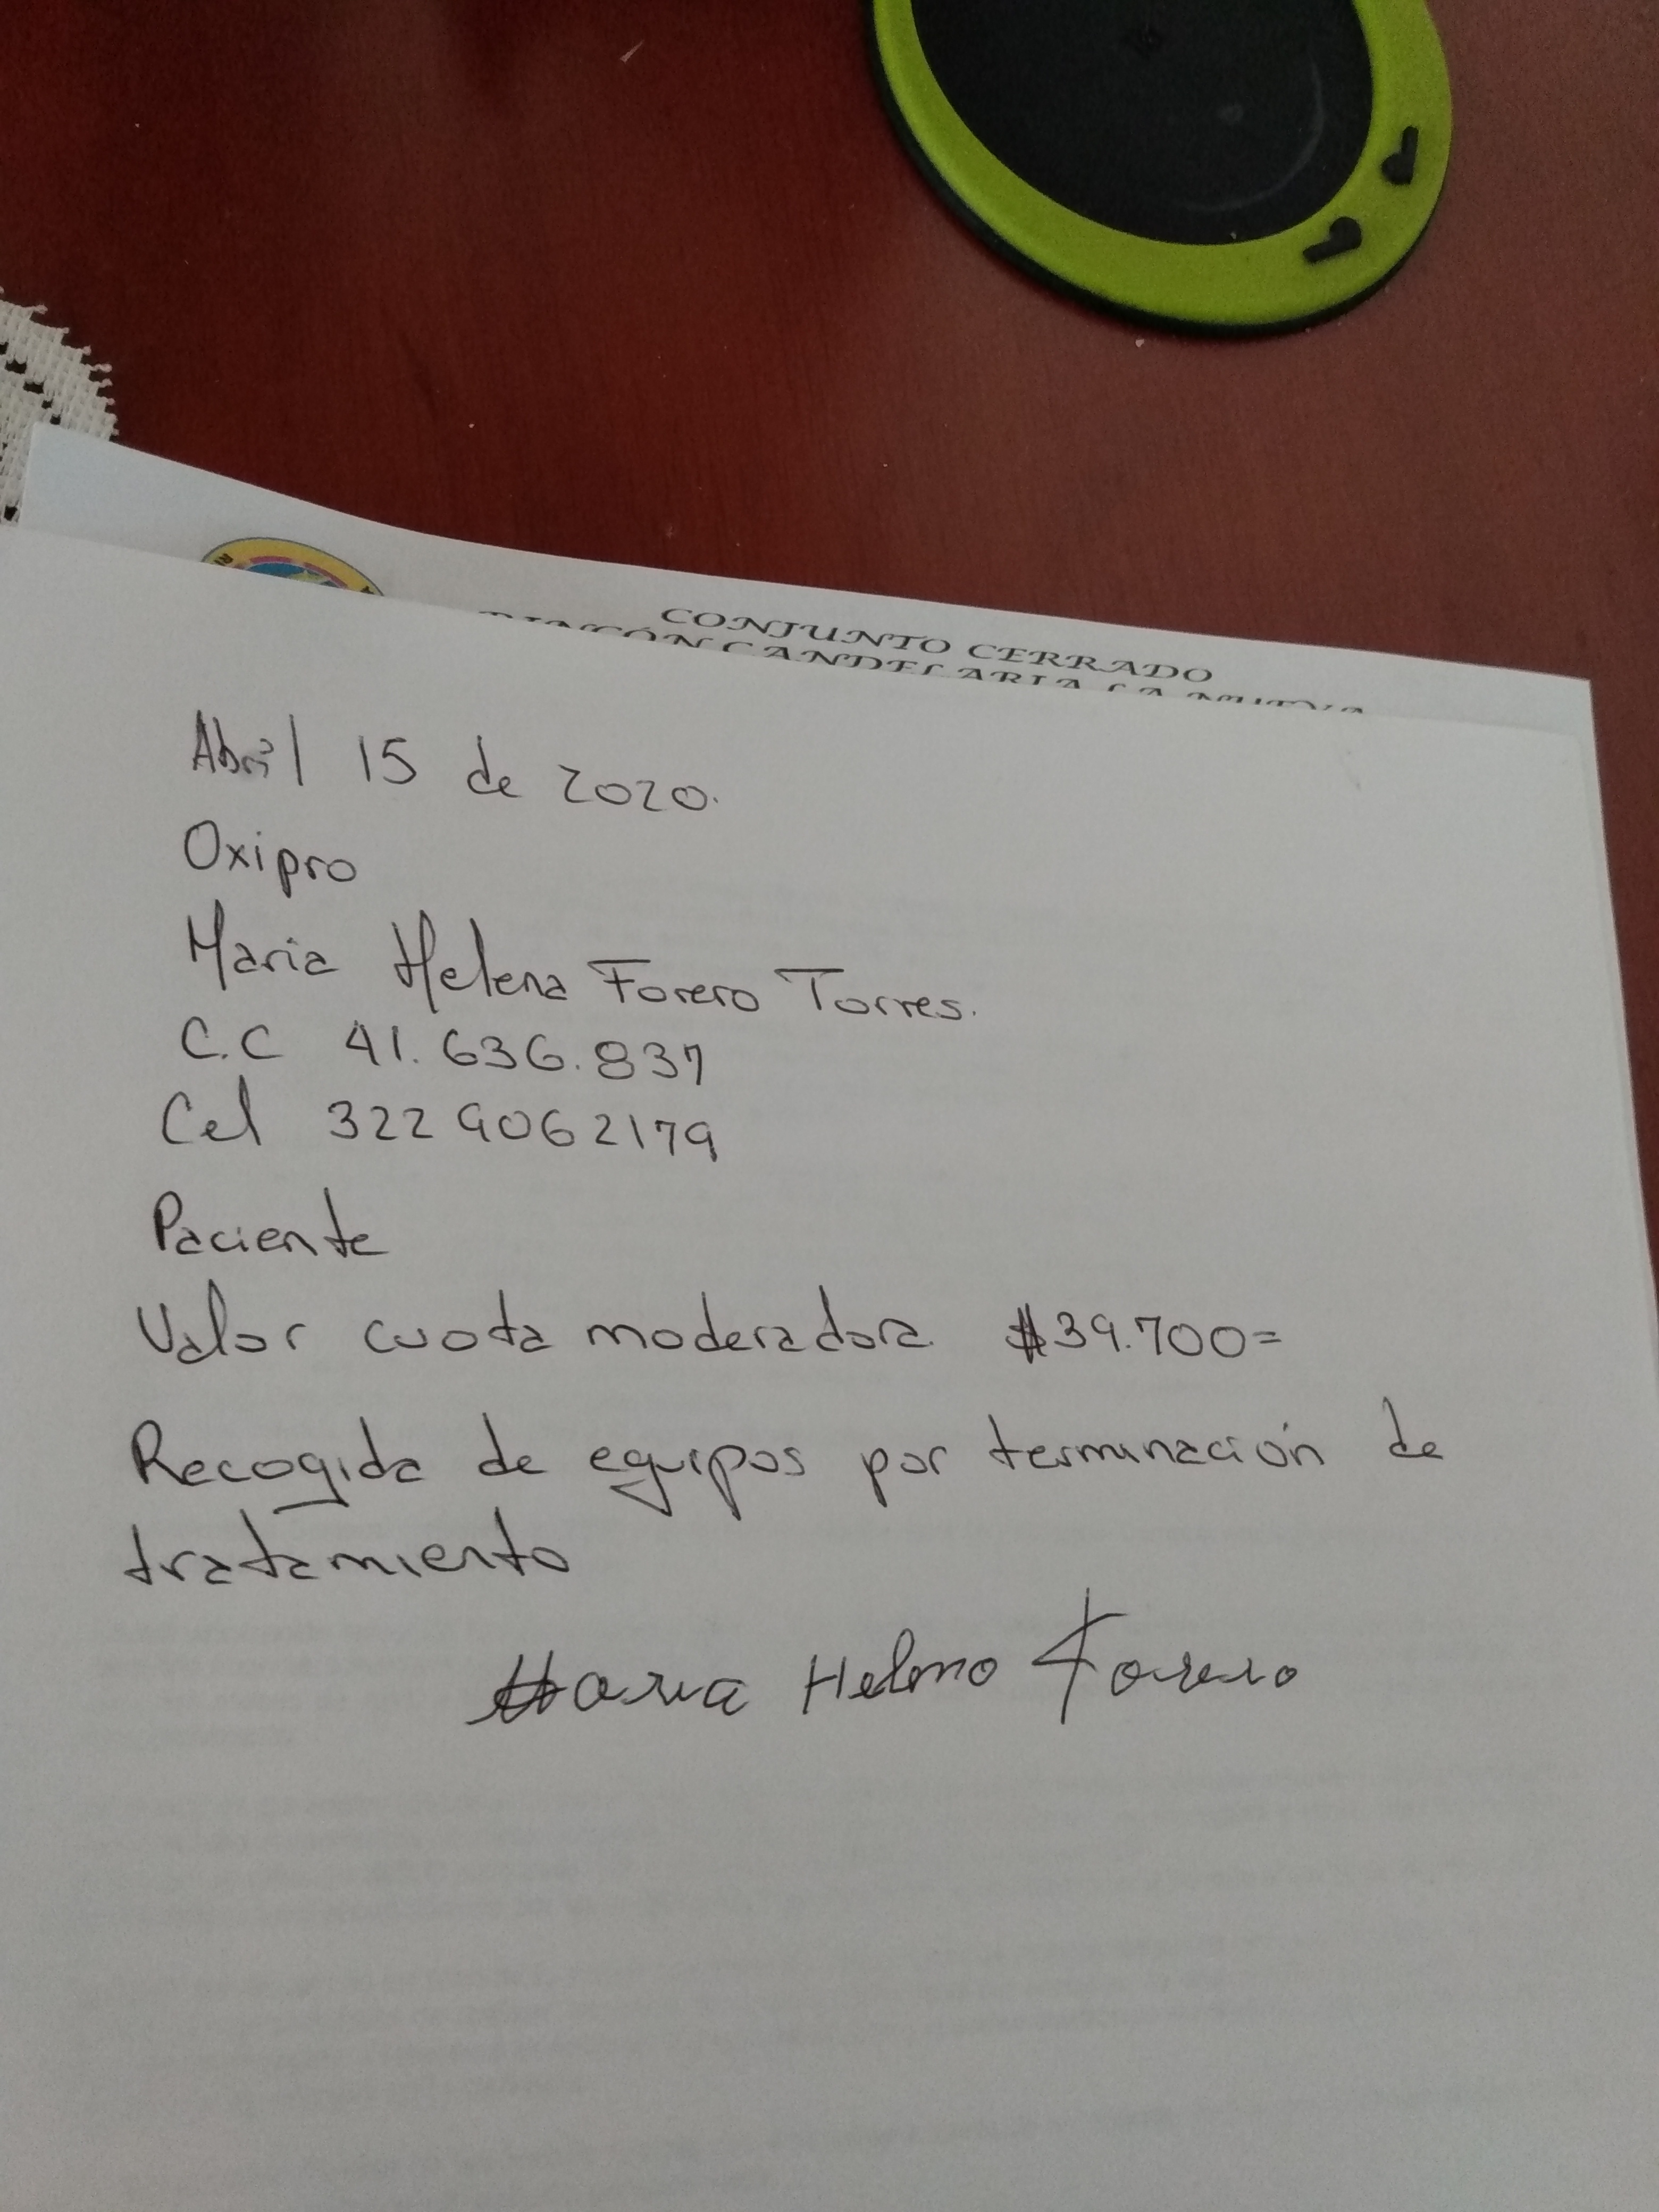 CONJUNTO CERRADO
RINCÓN CANDELARIA LA NUEVA
Abril 15 de 2020.
Oxipro
Maria Helena Forero Torres.
C.C 41.636.837
Cel 322 9062179
Paciente
Valor cuota moderadora $39.700=
Recogida de equipos por terminación de
tratamiento
Maria Helena Forero